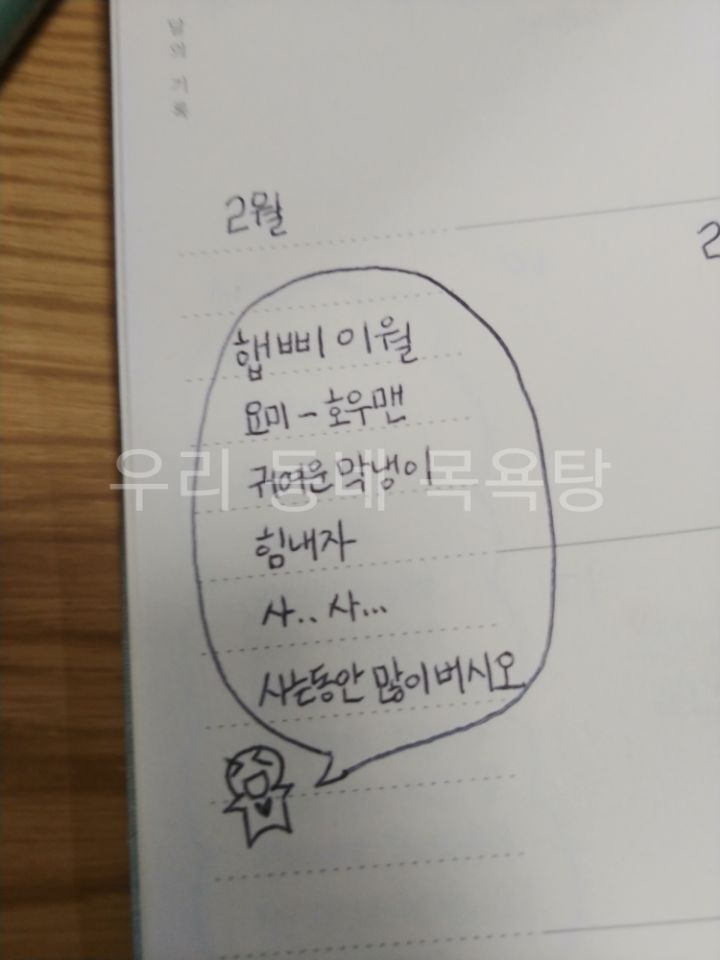 달의 기록
2월
2
햅삐 이월
요미 - 호우맨
귀여운 막냉이
우리 동네 목욕탕
힘내자
사.. 사...
사는동안 많이버시오